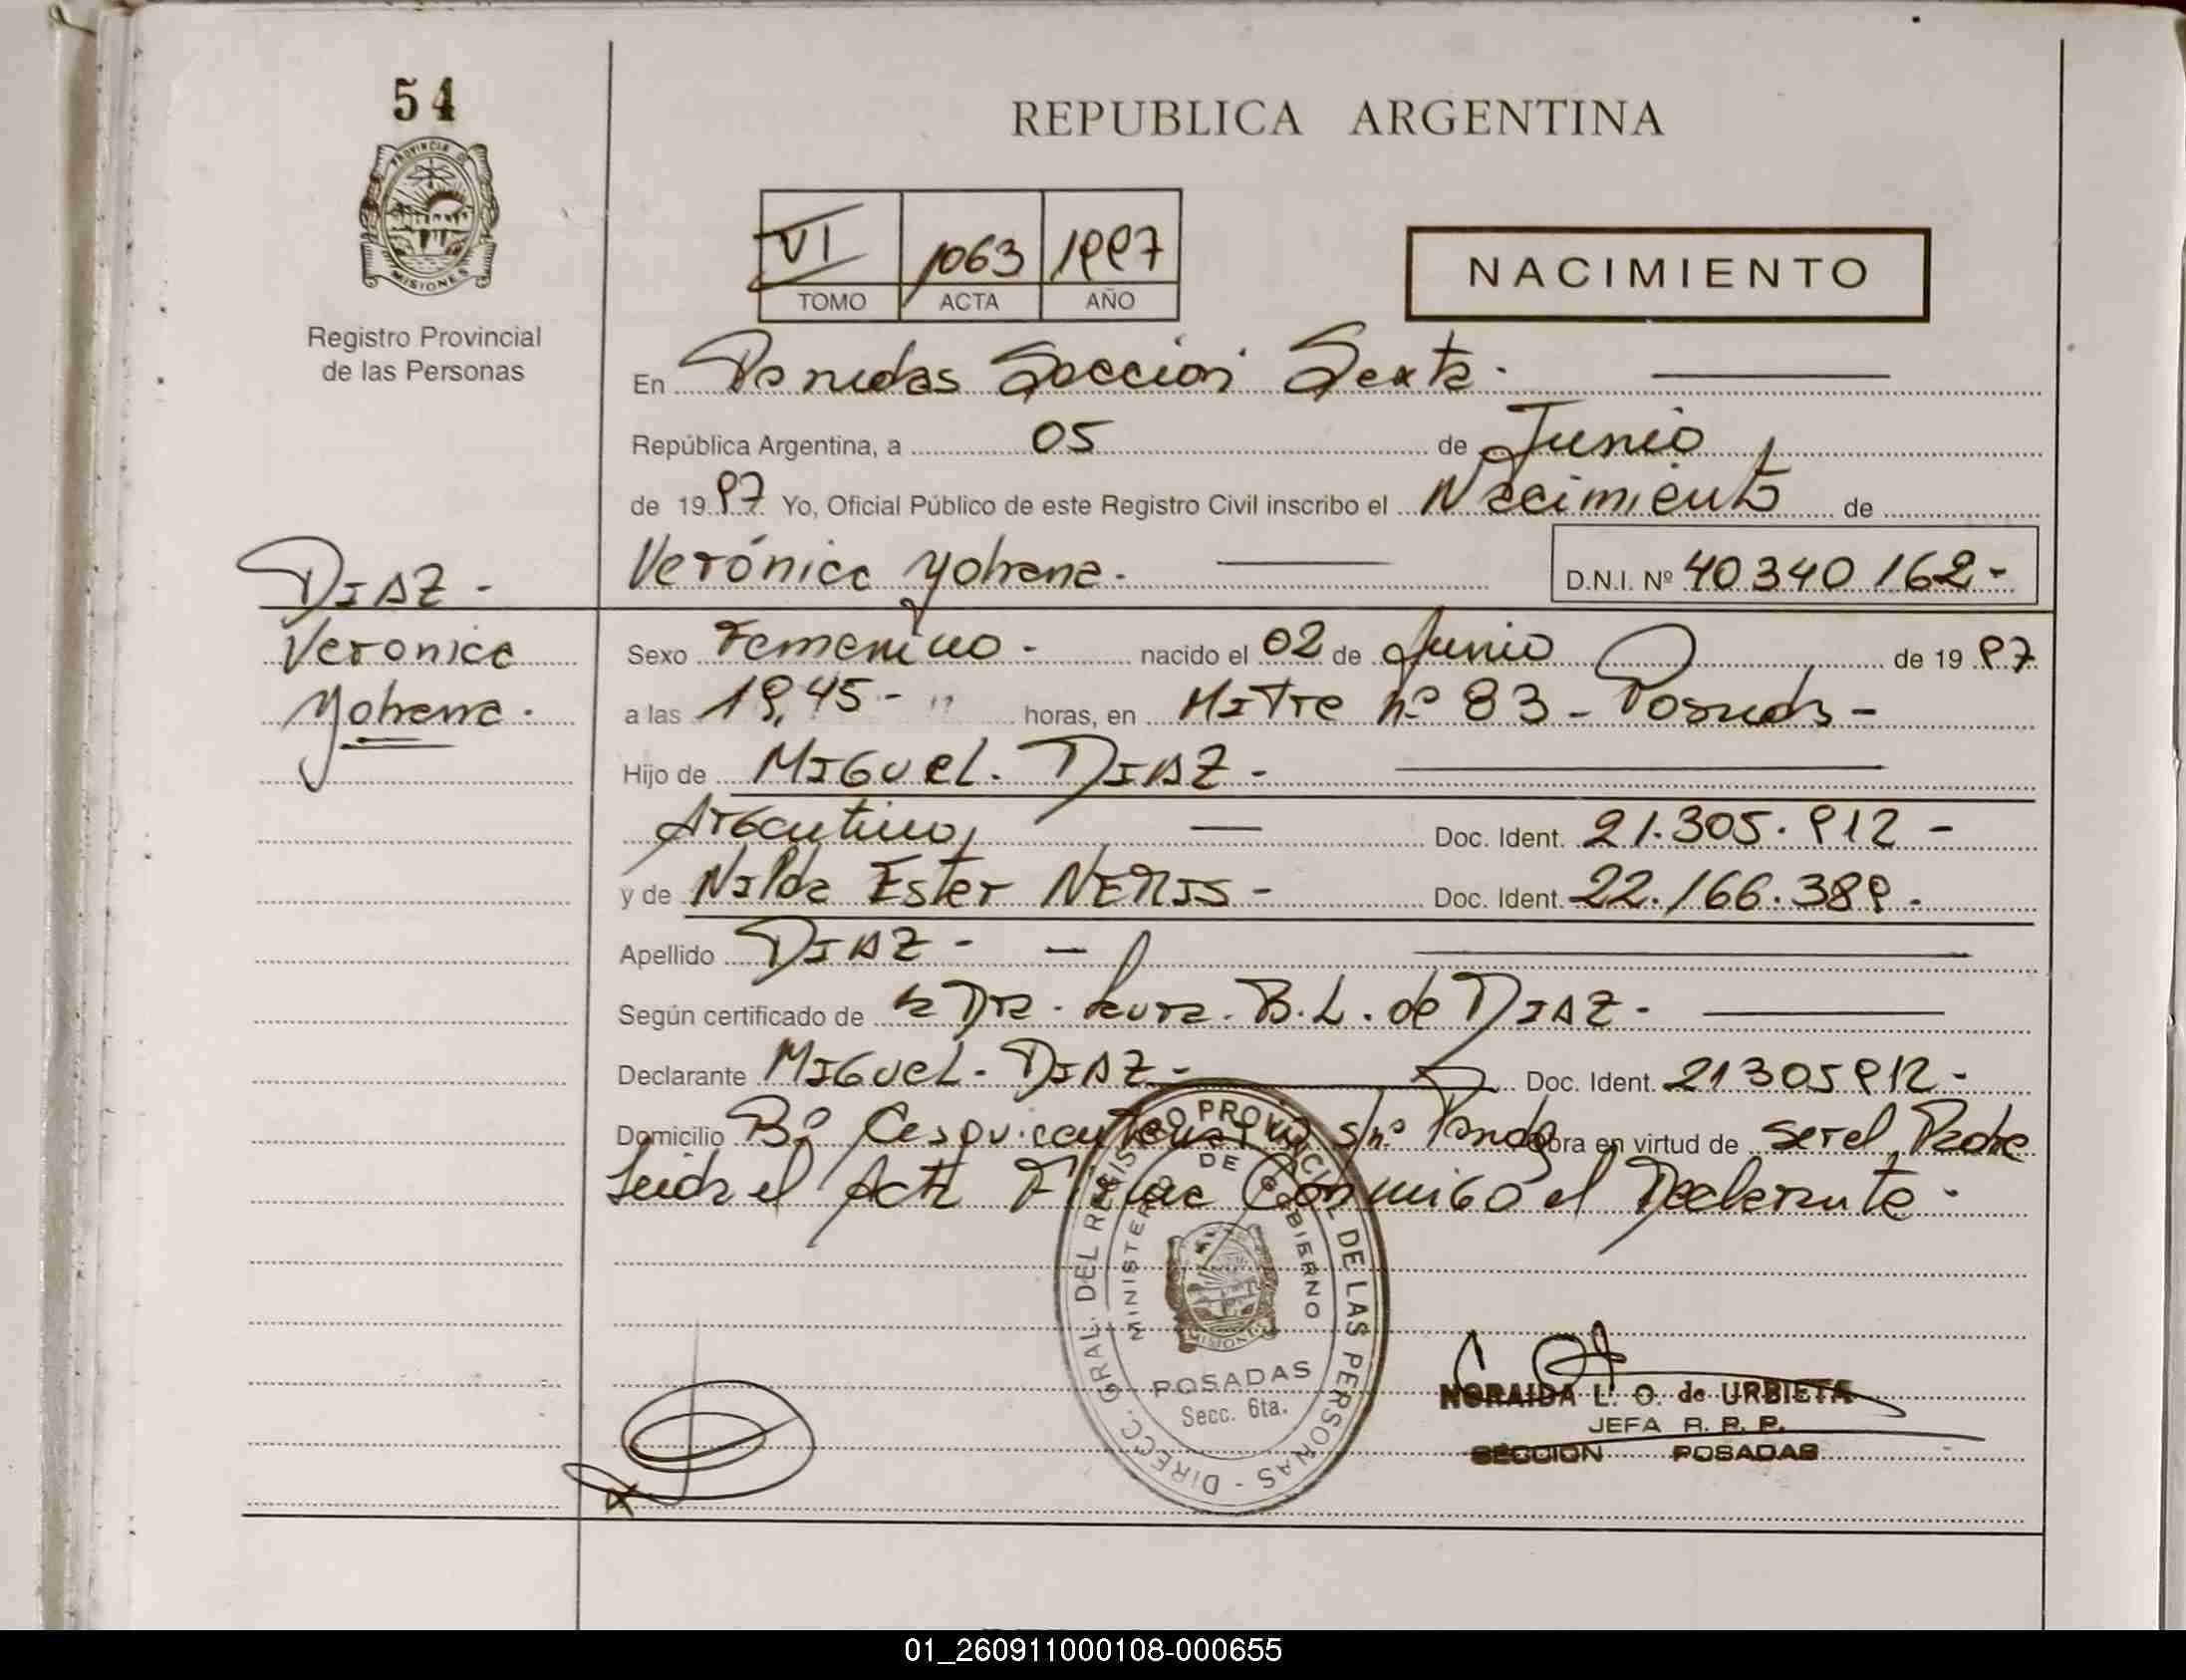 54
PROVINCIA DE
MISIONES
Registro Provincial
de las Personas
DIAZ -
Veronica
Yohana.
REPUBLICA ARGENTINA
VI 1063 1997
TOMO ACTA AÑO
NACIMIENTO
En Posadas Sección Sexta.
República Argentina, a 05 de Junio
de 1997 Yo, Oficial Público de este Registro Civil inscribo el Nacimiento de
Verónica Yohana. D.N.I. Nº 40340162-
Sexo Femenino - nacido el 02 de Junio de 1997
a las 19,45- horas, en Mitre nº 83 - Posadas -
Hijo de MIGUEL. DIAZ -
Argentino, Doc. Ident. 21.305.912 -
y de Nilda Ester NERIS - Doc. Ident. 22.166.389.
Apellido DIAZ - -
Según certificado de la Dra. Lura. B.L. de DIAZ -
Declarante MIGUEL. DIAZ - Doc. Ident. 21305912 -
Domicilio Bº s/nº obra en virtud de ser el Padre
Leida el Acta Firma Conmigo el Declarante.
DIRECC. GRAL. DEL REGISTRO PROVINCIAL DE LAS PERSONAS -
MINISTERIO DE GOBIERNO
MISIONES
POSADAS
Secc. 6ta.
NORAIDA L. O. de URBIETA
JEFA R. P. P.
SECCION POSADAS
01_260911000108-000655